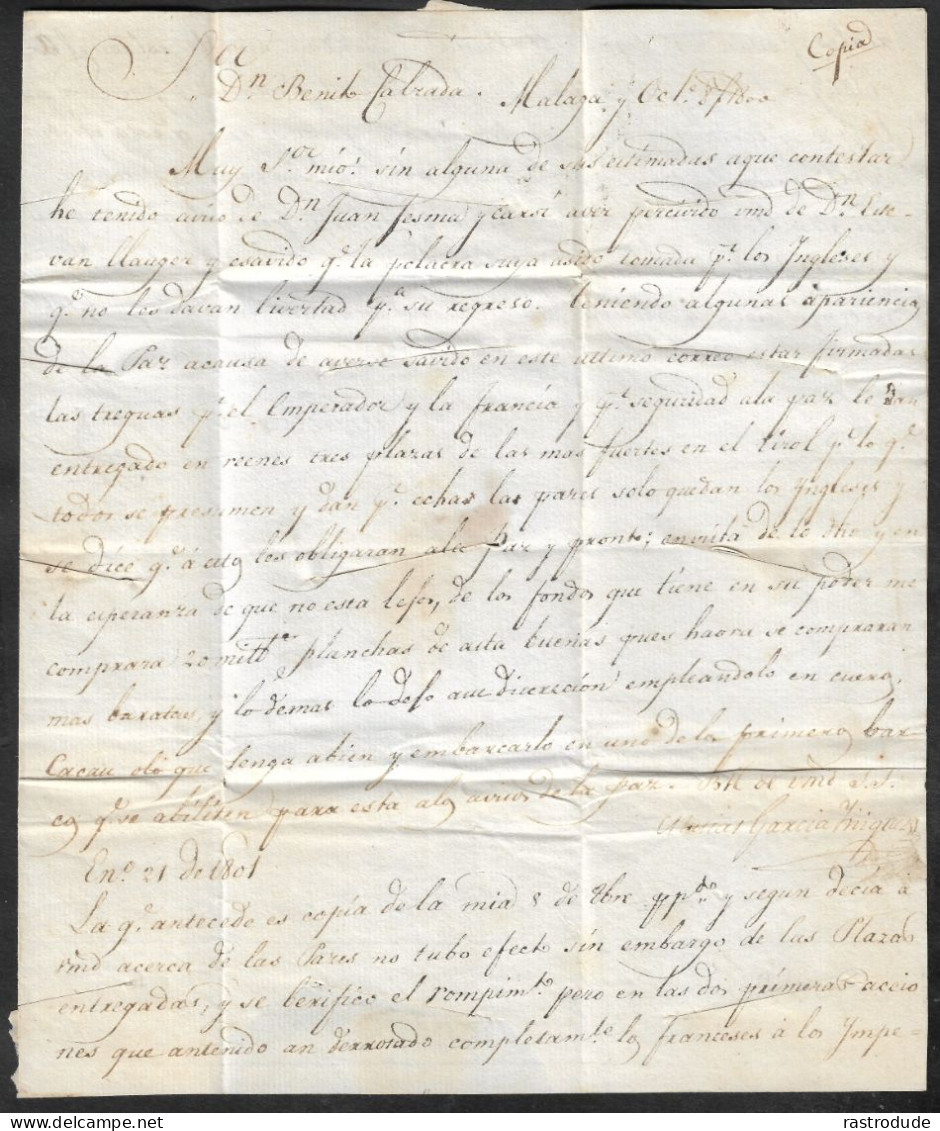 Copia
Dn. Benito Calzada. Malaga y Octe. 8 de 1800
Muy Sor. mio: sin alguna de sus estimadas aque contestar
he tenido aviso de Dn. Juan Lesma y Carsi aver percivido vmd de Dn. Este-
van Llauger y esavido qe. la polacra suya asido tomada pr. los Ingleses y
qe. no les davan livertad pa. su regreso. teniendo algunas apariencias
de la Paz acausa de averse savido en este ultimo correo estar firmadas
las treguas pr. el Emperador y la francia y pr. seguridad ala paz le han
entregado en reenes tres plazas de las mas fuertes en el tirol pr. lo qe.
todos se presumen y dan pr. echas las pazes solo quedan los Ingleses y
se dice qe. á estos les obligaran ala Paz y pronto; en vista de lo dho y en
la esperanza de que no esta lejos, de los fondos que tiene en su poder me
comprara 20 planchas de asta buenas pues haora se compraran
mas baratas, y lo demas lo dejo asu discrecion empleandolo en cueros,
Cacau oló que tenga abien y embarcarlo en uno de la primeros bar
cos qe. se abiliten para esta alos avisos de la paz. BM de vmd S. S.
Matias Garcia Iñiguez
Eno. 21 de 1801
La qe. antecede es copia de la mia 8 de 8bre ppdo. y segun decia á
vmd acerca de las Pazes no tubo efecto sin embargo de las Plazas
entregadas, y se berifico el rompimto. pero en las dos primeras accio
nes que antenido an derrotado completamte. los franceses á los Impe-
rastrodude